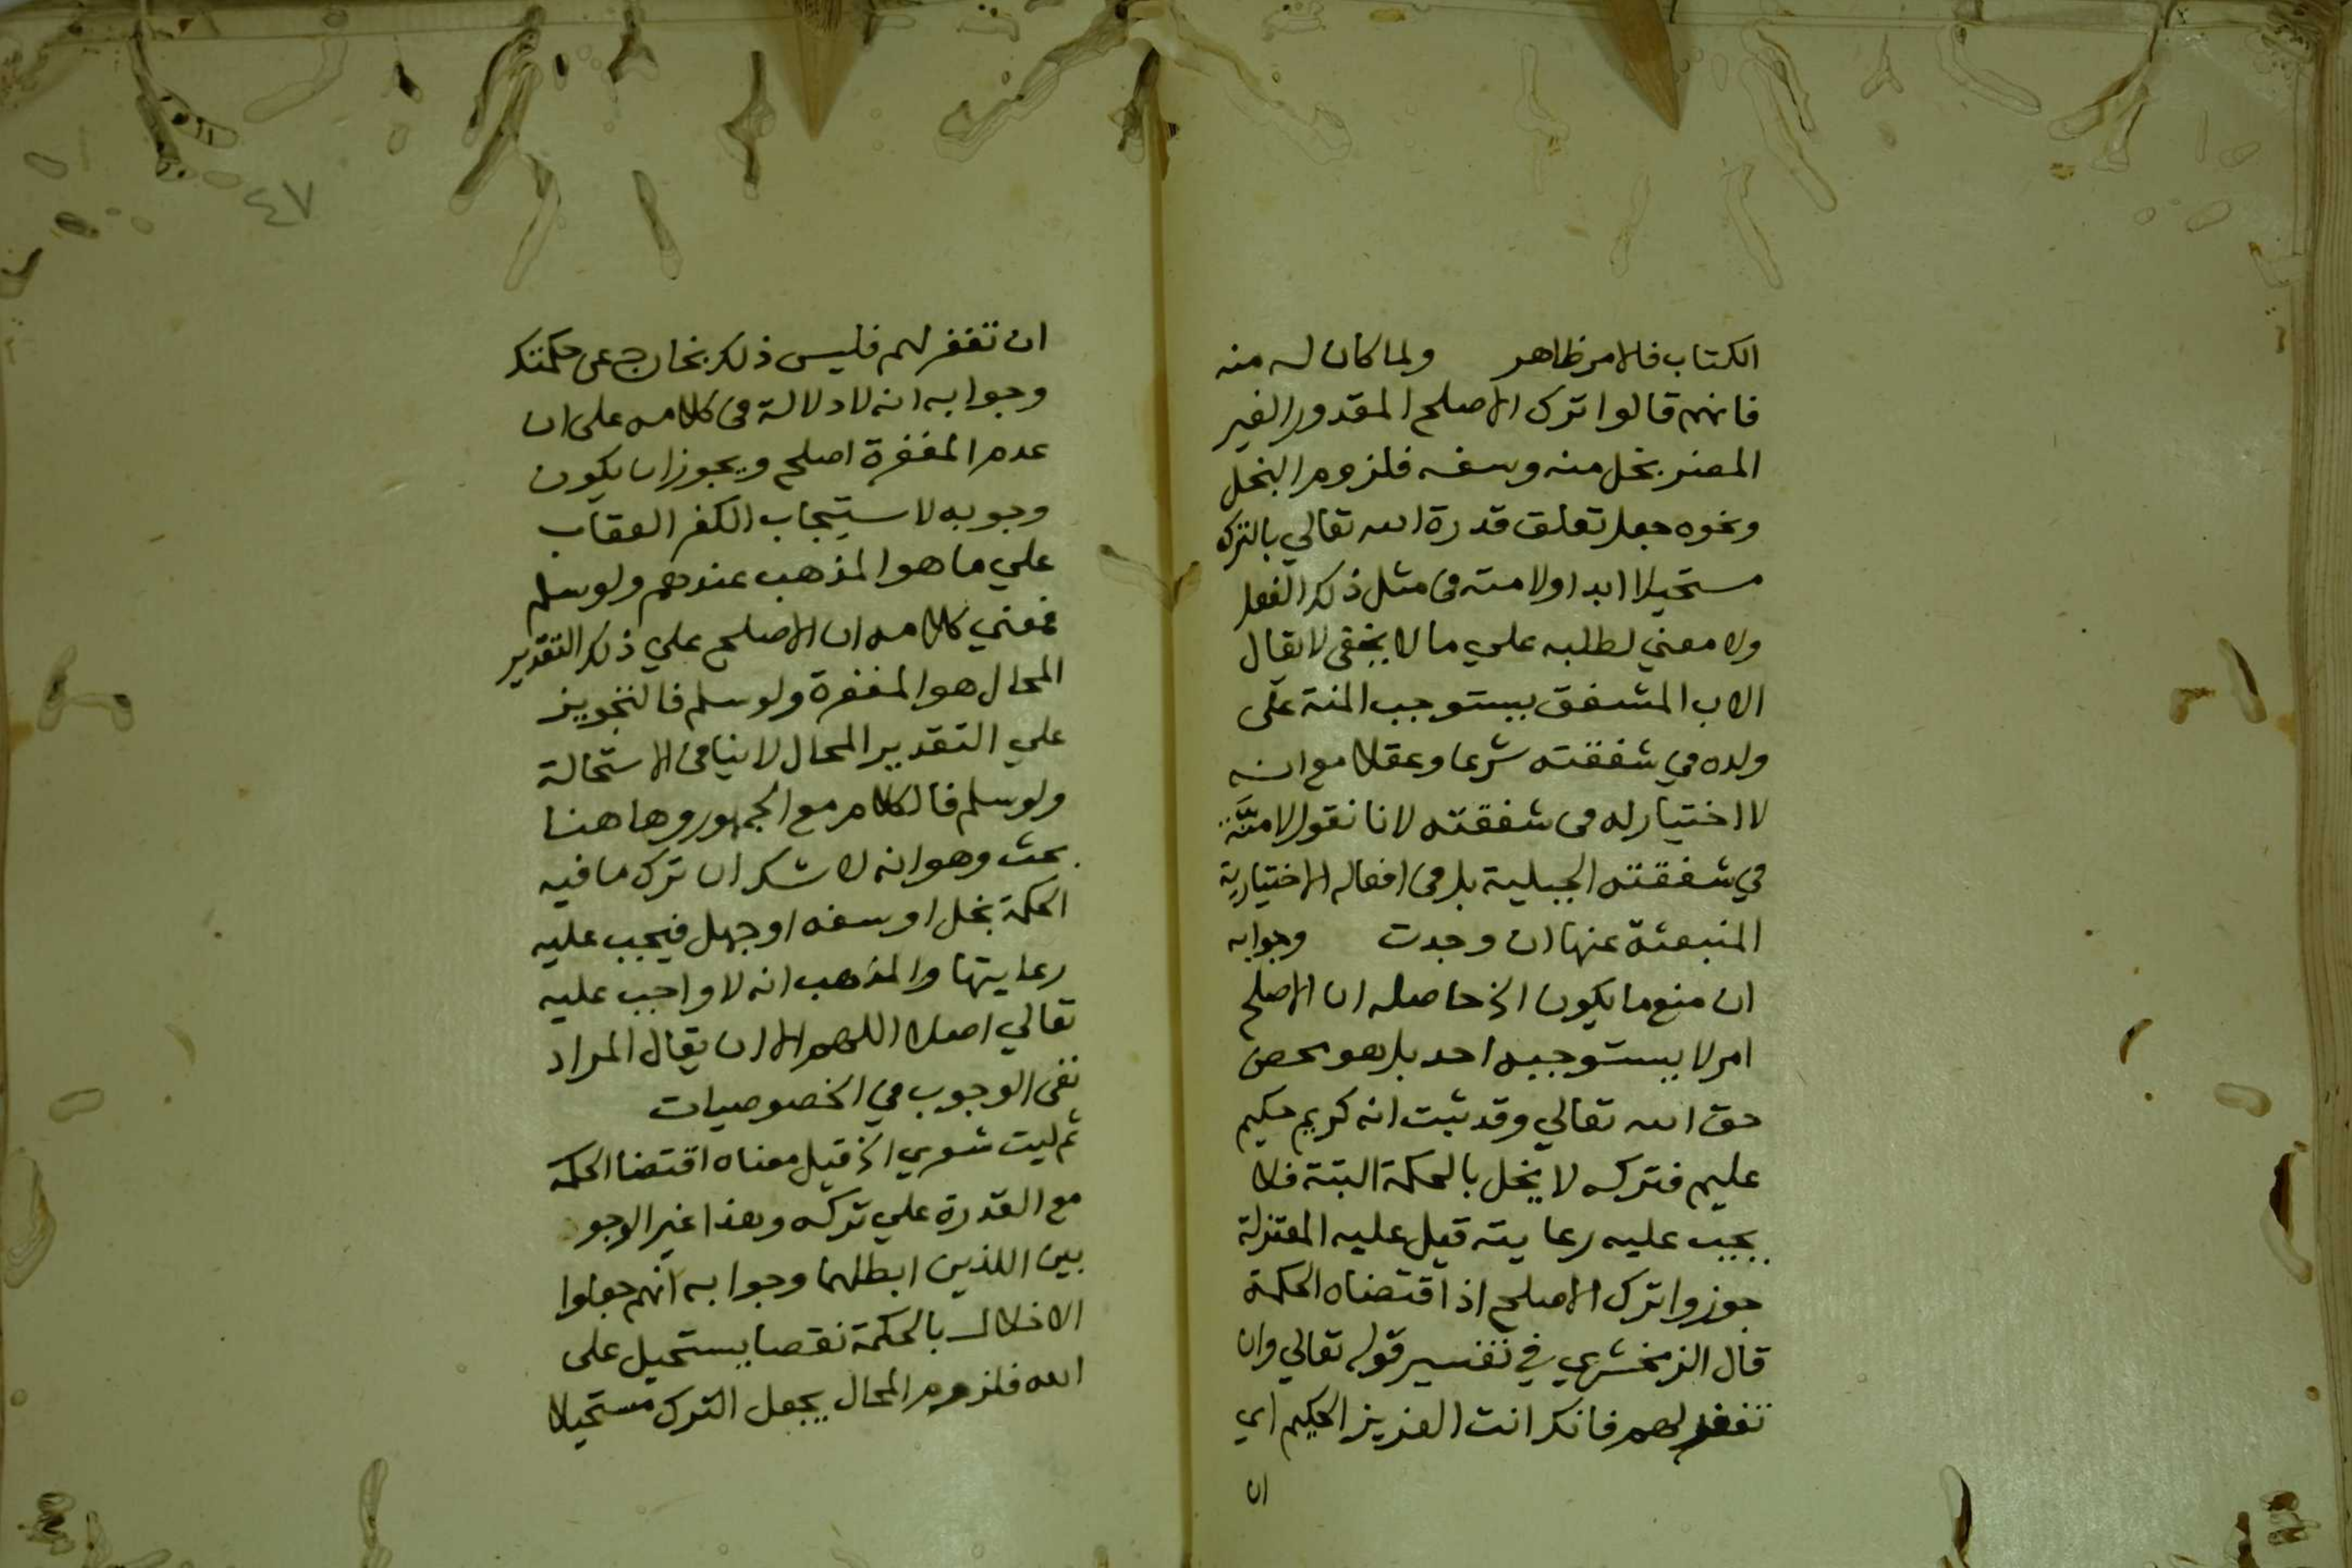 الكتاب فالامر ظاهر ولما كان له منه
فانهم قالوا ترك الاصلح المقدور الغير
المضر بخل منه وسفه فلزوم البخل
ونحوه جعل تعلق قدرة الله تعالي بالترك
مستحيلا ابدا ولا منه فى مثل ذلك الفعل
ولا معني لطلبه علي ما لا يخفى لا يقال
الاب المشفق يستوجب المنة على
ولده في شفقته شرعا وعقلا مع انه
لا اختيار له فى شفقته لانا نقول لا منَّة
في شفقته الجبلية بل فى افعاله الاختيارية
المنبعثة عنها ان وجدت وجوابه
ان منع ما يكون الخ حاصله ان الاصلح
امر لا يستوجبه احد بل هو محض
حق الله تعالي وقد ثبت انه كريم حكيم
عليم فتركه لا يخل بالحكمة البتة فلا
يجب عليه رعايته قيل عليه المعتزلة
جوزوا ترك الاصلح اذ اقتضاه الحكمة
قال الزمخشري في تفسير قوله تعالي وان
تغفر لهم فانك انت العزيز الحكيم اي
ان
٤٧
ان تغفر لهم فليس ذلك بخارج عن حكمتك
وجوابه انه لا دلالة فى كلامه على ان
عدم المغفرة اصلح ويجوز ان يكون
وجوبه لاستيجاب الكفر العقاب
علي ما هو المذهب عندهم ولو سلم
فمعني كلامه ان الاصلح علي ذلك التقدير
المحال هو المغفرة ولو سلم فالتجويز
علي التقدير المحال لا ينافى الاستحالة
ولو سلم فالكلام مع الجمهور وهاهنا
بحث وهو انه لا شك ان ترك ما فيه
الحكمة بخل او سفه او جهل فيجب عليه
رعايتها والمذهب انه لا واجب عليه
تعالي اصلا اللهم الا ان يقال المراد
نفى الوجوب في الخصوصيات
ثم ليت شعري الخ قيل معناه اقتضا الحكمة
مع القدرة علي تركه وهذا غير الوجو
بين اللذين ابطلهما وجوابه انهم جعلوا
الاخلال بالحكمة نقصا يستحيل على
الله فلزوم المحال يجعل الترك مستحيلا